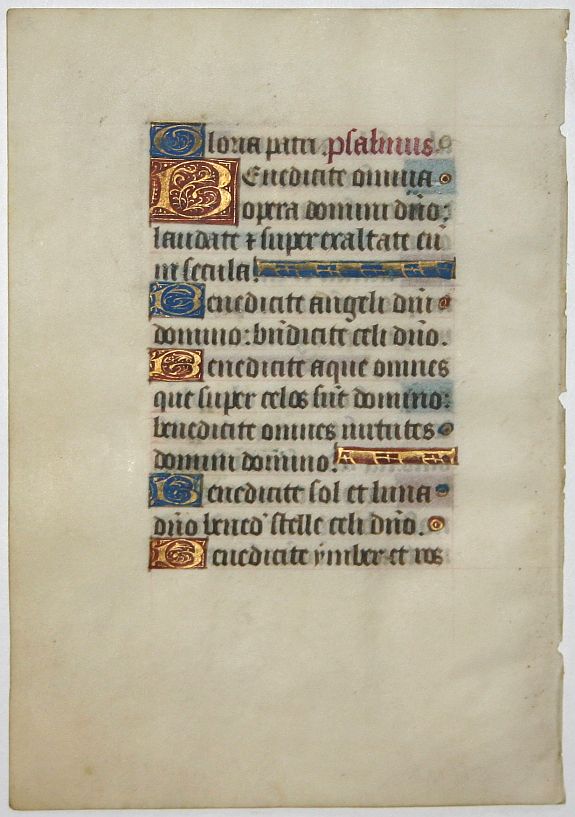 Gloria patri. psalmus.
Benedicite omnia
opera domini dño:
laudate ⁊ super exaltate eũ
in secula!
Benedicite angeli dñi
domino: bñdicite celi dño.
Benedicite aque omnes
que super celos sũt domino:
benedicite omnes uirtutes
domini domino!
Benedicite sol et luna
dño bened' stelle celi dño.
Benedicite ymber et ros